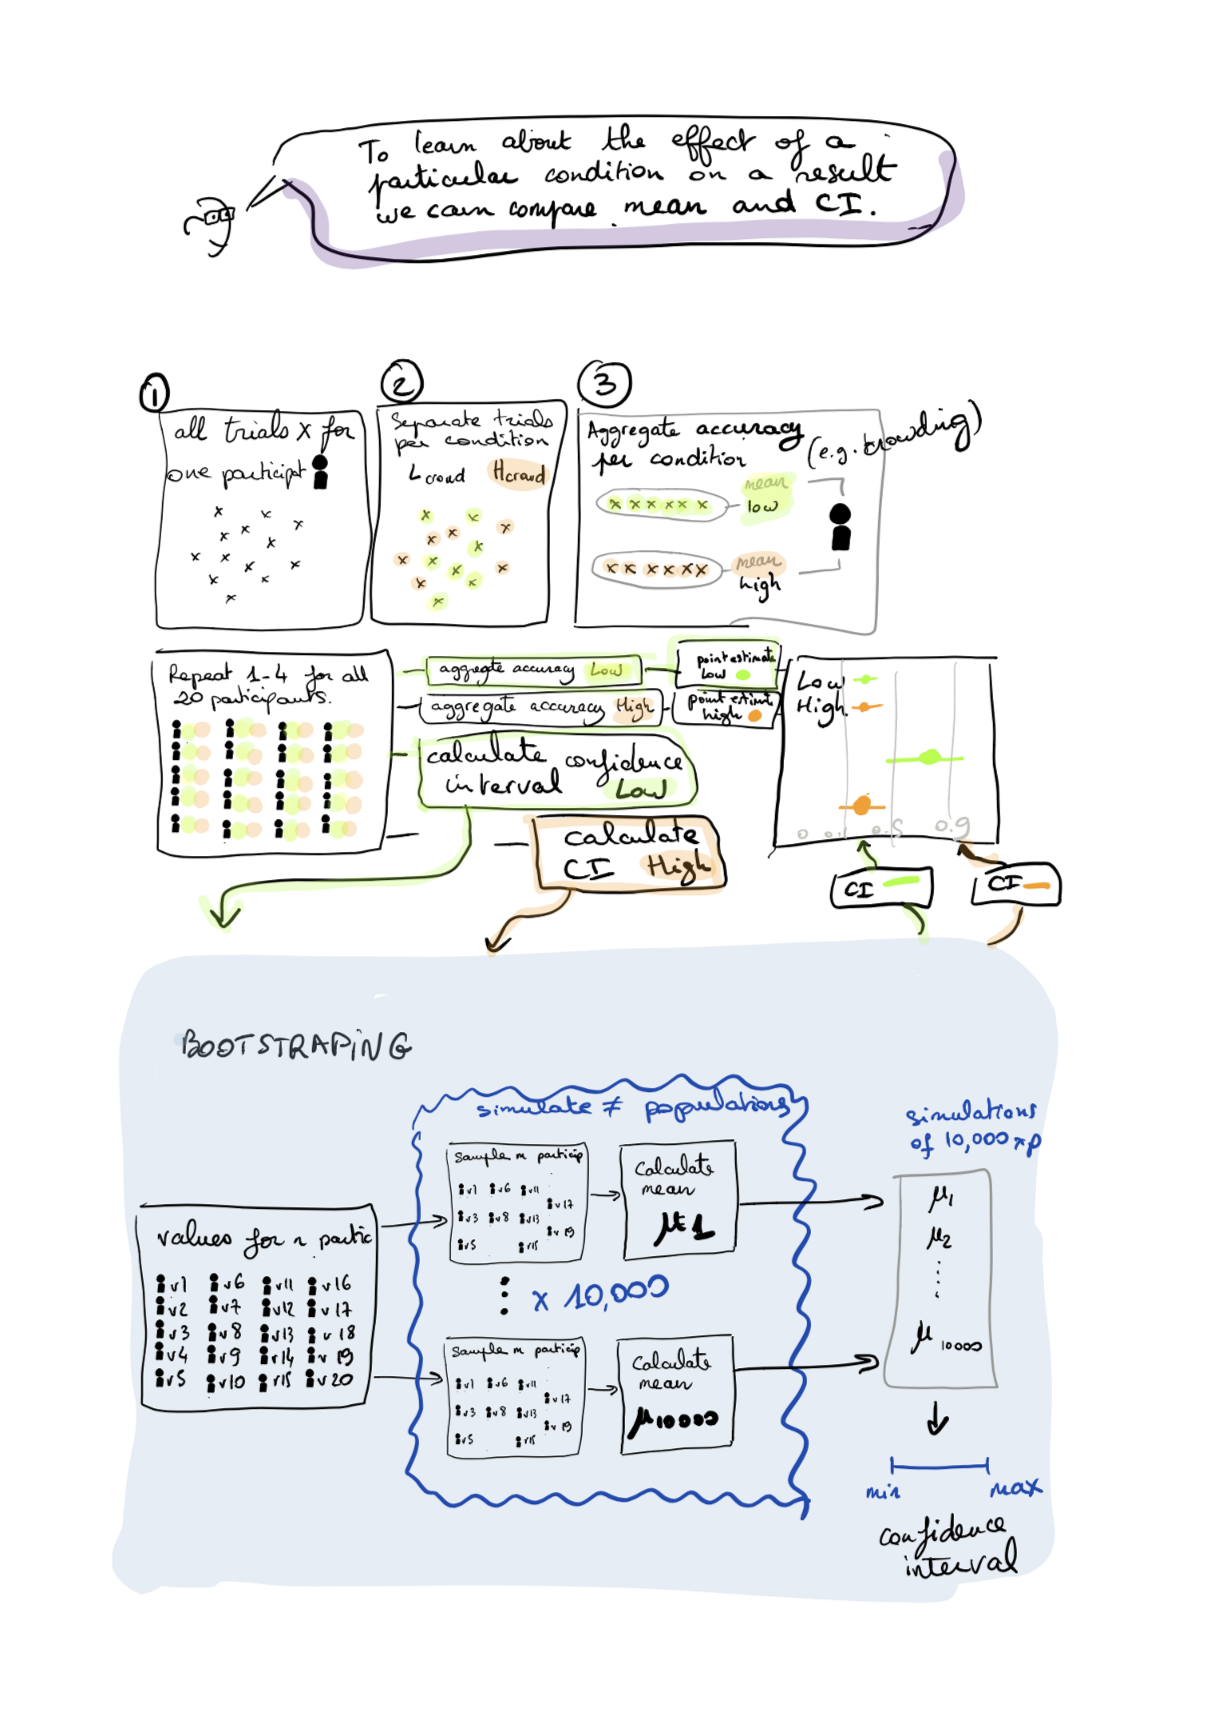 To learn about the effect of a
particular condition on a result
we can compare mean and CI.
1
all trials x for
one participt
2
Separate trials
per condition
Lcrowd Hcrowd
3
Aggregate accuracy
per condition
(e.g. crowding)
mean
low
mean
high
Repeat 1-4 for all
20 participants.
aggregate accuracy Low
aggregate accuracy High
calculate confidence
interval Low
calculate
CI High
point estimate
Low
point estimt
high
Low
High
0 0.1 0.5 0.9
CI
CI
BOOTSTRAPiNG
values for n partic
v1 v6 v11 v16
v2 v7 v12 v17
v3 v8 v13 v18
v4 v9 v14 v19
v5 v10 v15 v20
simulate ≠ populations
Sample n particip
v1 v6 v11
v17
v3 v8 v13
v19
v5 v15
Calculate
mean
x 10,000
Sample n particip
v1 v6 v11
v17
v3 v8 v13
v19
v5 v15
Calculate
mean
μ10000
simulations
of 10,000 xp
μ1
μ2
μ10000
min max
confidence
interval